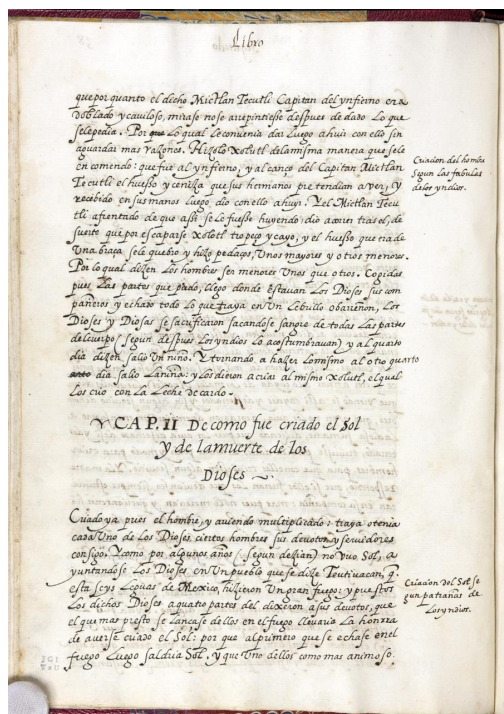 Libro
que por quanto el dicho Mictlan Tecutli Capitan del ynfierno era
doblado y cauiloso, mirase no se arrepintiesse despues de dado Lo que
se le pedia. Por que Lo qual le conuenia dar luego a huir con ello sin
aguardar mas razones. Hizolo Xolutl de la misma manera que se le
en comendo: que fue al ynfierno, y alcanço del Capitan Mictlan
Tecutli el huesso y ceniza que sus hermanos pretendian auer, y
recebido en sus manos luego dio con ello a huyr. Y el Mictlan Tecu
tli afrentado de que assi se le fuesse huyendo, dio a correr tras el, de
suerte que por escaparse Xolotl tropeço y cayo, y el huesso que era de
Una braça se le quebro y hizo pedaços, Unos mayores y otros menores.
Por lo qual dizen Los hombres ser menores Unos que otros. Cogidas
pues Las partes que pudo, llego donde estauan Los Dioses sus com
pañeros y echado todo Lo que traya en Un Lebrillo o barreñon, Los
Dioses y Diosas se sacrificaron sacandose sangre de todas Las partes
del cuerpo (segun despues Los yndios Lo acostumbrauan) y al quarto
dia dizen salio Un niño. Y tornando a hazer Lo mismo al otro quarto
dia salio La niña: y Los dieron a criar al mismo Xolutl, el qual
Los crio con La Leche de cardo.
Criacion del hombre
segun las fabulas
de los yndios.
CAP. II De como fue criado el Sol
y de la muerte de los
Dioses
Criado ya pues el hombre, y auiendo multiplicado: traya o tenia
cada Uno de Los Dioses, ciertos hombres sus deuotos y seruidores
consigo. Y como por algunos años (segun dezian) no Vuo Sol, a
yuntandose Los Dioses en Un pueblo que se dize Teutiuacan, q.
esta seys Leguas de Mexico, hizieron Un gran fuego: y puestos
Los dichos Dioses a quatro partes del dixeron a sus deuotos, que
el que mas presto se Lançase dellos en el fuego lleuaria La honrra
de auerse criado el Sol: por que al primero que se echase en el
fuego Luego saldria Sol. y que Uno dellos como mas animoso.
Criacion del Sol se
gun patrañas de
Los yndios.